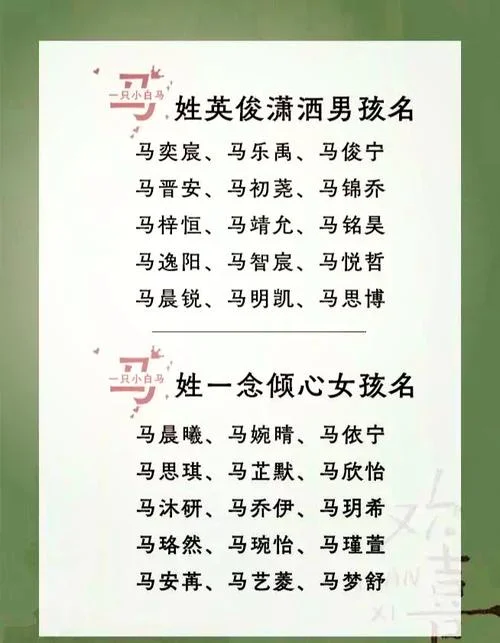 马 姓英俊潇洒男孩名
一只小白马
马奕宸、马乐禹、马俊宁
马晋安、马初荛、马锦乔
马梓恒、马靖允、马铭昊
马逸阳、马智宸、马悦哲
马晨锐、马明凯、马思博
马 姓一念倾心女孩名
一只小白马
马晨曦、马婉晴、马依宁
马思琪、马芷默、马欣怡
马沐研、马乔伊、马玥希
马珞然、马琬怡、马瑾萱
马安苒、马艺菱、马梦舒
欢喜
HUAN
XI